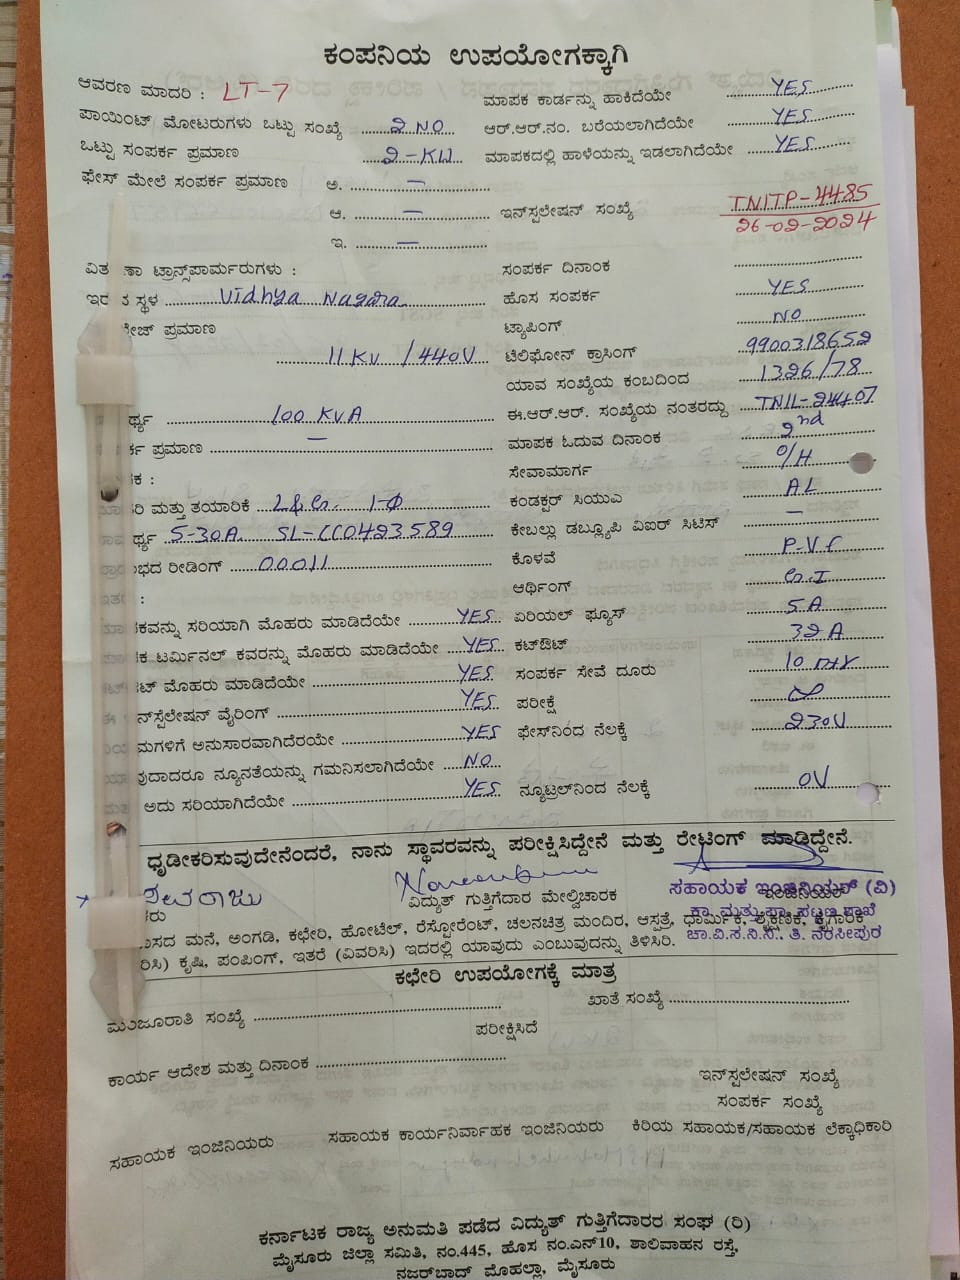 ಕಂಪನಿಯ ಉಪಯೋಗಕ್ಕಾಗಿ
ಆವರಣ ಮಾದರಿ : LT-7
ಮಾಪಕ ಕಾರ್ಡನ್ನು ಹಾಕಿದೆಯೇ YES
ಪಾಯಿಂಟ್ ಮೋಟರುಗಳು ಒಟ್ಟು ಸಂಖ್ಯೆ 2 NO
ಆರ್.ಆರ್.ನಂ. ಬರೆಯಲಾಗಿದೆಯೇ YES
ಒಟ್ಟು ಸಂಪರ್ಕ ಪ್ರಮಾಣ 2-KW
ಮಾಪಕದಲ್ಲಿ ಹಾಳೆಯನ್ನು ಇಡಲಾಗಿದೆಯೇ YES
ಫೇಸ್ ಮೇಲೆ ಸಂಪರ್ಕ ಪ್ರಮಾಣ ಅ. —
ಆ. —
ಇನ್‌ಸ್ಪಲೇಷನ್ ಸಂಖ್ಯೆ TNITP-4485
26-02-2024
ಇ. —
ಸಂಪರ್ಕ ದಿನಾಂಕ
ಟ್ರಾನ್ಸ್‌ಪಾರ್ಮರುಗಳು :
ಸ್ಥಳ Vidhya Nagara
ಹೊಸ ಸಂಪರ್ಕ YES
ಪ್ರಮಾಣ
ಟ್ಯಾಪಿಂಗ್ NO
11 KV / 440V
ಟೆಲಿಫೋನ್ ಕ್ರಾಸಿಂಗ್ 9900318652
ಯಾವ ಸಂಖ್ಯೆಯ ಕಂಬದಿಂದ 1326/78
100 KVA
ಈ.ಆರ್.ಆರ್. ಸಂಖ್ಯೆಯ ನಂತರದ್ದು TNIL-24407
ಪ್ರಮಾಣ —
ಮಾಪಕ ಓದುವ ದಿನಾಂಕ 2nd
ಸೇವಾಮಾರ್ಗ O/H
ಮತ್ತು ತಯಾರಿಕೆ L&G. 1-Φ
ಕಂಡಕ್ಟರ್ ಸಿಯುವಿ AL
5-30A. SL-CC0423589
ಕೇಬಲ್ಲು ಡಬ್ಲ್ಯೂಪಿ ವಿಐರ್ ಸಿಟಿಸ್ —
ರೀಡಿಂಗ್ 00011
ಕೊಳವೆ P.V.C
ಆರ್ಥಿಂಗ್ G.I
ಸರಿಯಾಗಿ ಮೊಹರು ಮಾಡಿದೆಯೇ YES
ಏರಿಯಲ್ ಫ್ಯೂಸ್ 5A
ಟರ್ಮಿನಲ್ ಕವರನ್ನು ಮೊಹರು ಮಾಡಿದೆಯೇ YES
ಕಟ್‌ಔಟ್ 32A
ಮೊಹರು ಮಾಡಿದೆಯೇ YES
ಸಂಪರ್ಕ ಸೇವೆ ದೂರು 10 mtr
ವೈರಿಂಗ್ YES
ಪರೀಕ್ಷೆ ∞
ಅನುಸಾರವಾಗಿದೆರಯೇ YES
ಫೇಸ್‌ನಿಂದ ನೆಲಕ್ಕೆ 230V
ನ್ಯೂನತೆಯನ್ನು ಗಮನಿಸಲಾಗಿದೆಯೇ NO
ಅದು ಸರಿಯಾಗಿದೆಯೇ YES
ನ್ಯೂಟ್ರಲ್‌ನಿಂದ ನೆಲಕ್ಕೆ 0V
ಧೃಡೀಕರಿಸುವುದೇನೆಂದರೆ, ನಾನು ಸ್ಥಾವರವನ್ನು ಪರೀಕ್ಷಿಸಿದ್ದೇನೆ ಮತ್ತು ರೇಟಿಂಗ್ ಮಾಡಿದ್ದೇನೆ.
ವಿದ್ಯುತ್ ಗುತ್ತಿಗೆದಾರ ಮೇಲ್ವಿಚಾರಕ
ಸಹಾಯಕ ಇಂಜಿನಿಯರ್ (ವಿ)
ಕಾ ಮತ್ತು ಪಾ ಪಟ್ಟಣ ಶಾಖೆ
ಚಾ.ವಿ.ಸ.ನಿ.ನಿ., ತಿ. ನರಸೀಪುರ
ಮನೆ, ಅಂಗಡಿ, ಕಛೇರಿ, ಹೋಟೆಲ್, ರೆಸ್ಟೋರೆಂಟ್, ಚಲನಚಿತ್ರ ಮಂದಿರ, ಆಸ್ಪತ್ರೆ, ಧಾರ್ಮಿಕ, ಶೈಕ್ಷಣಿಕ, ಕೈಗಾರಿಕೆ
ಕೃಷಿ, ಪಂಪಿಂಗ್, ಇತರೆ (ವಿವರಿಸಿ) ಇದರಲ್ಲಿ ಯಾವುದು ಎಂಬುವುದನ್ನು ತಿಳಿಸಿರಿ.
ಕಛೇರಿ ಉಪಯೋಗಕ್ಕೆ ಮಾತ್ರ
ಮಂಜೂರಾತಿ ಸಂಖ್ಯೆ
ಖಾತೆ ಸಂಖ್ಯೆ
ಪರೀಕ್ಷಿಸಿದೆ
ಕಾರ್ಯ ಆದೇಶ ಮತ್ತು ದಿನಾಂಕ
ಇನ್‌ಸ್ಪಲೇಷನ್ ಸಂಖ್ಯೆ
ಸಂಪರ್ಕ ಸಂಖ್ಯೆ
ಸಹಾಯಕ ಇಂಜಿನಿಯರು ಸಹಾಯಕ ಕಾರ್ಯನಿರ್ವಾಹಕ ಇಂಜಿನಿಯರು ಕಿರಿಯ ಸಹಾಯಕ/ಸಹಾಯಕ ಲೆಕ್ಕಾಧಿಕಾರಿ
ಕರ್ನಾಟಕ ರಾಜ್ಯ ಅನುಮತಿ ಪಡೆದ ವಿದ್ಯುತ್ ಗುತ್ತಿಗೆದಾರರ ಸಂಘ (ರಿ)
ಮೈಸೂರು ಜಿಲ್ಲಾ ಸಮಿತಿ, ನಂ.445, ಹೊಸ ನಂ.ಎನ್10, ಶಾಲಿವಾಹನ ರಸ್ತೆ,
ನಜರ್‌ಬಾದ್ ಮೊಹಲ್ಲಾ, ಮೈಸೂರು